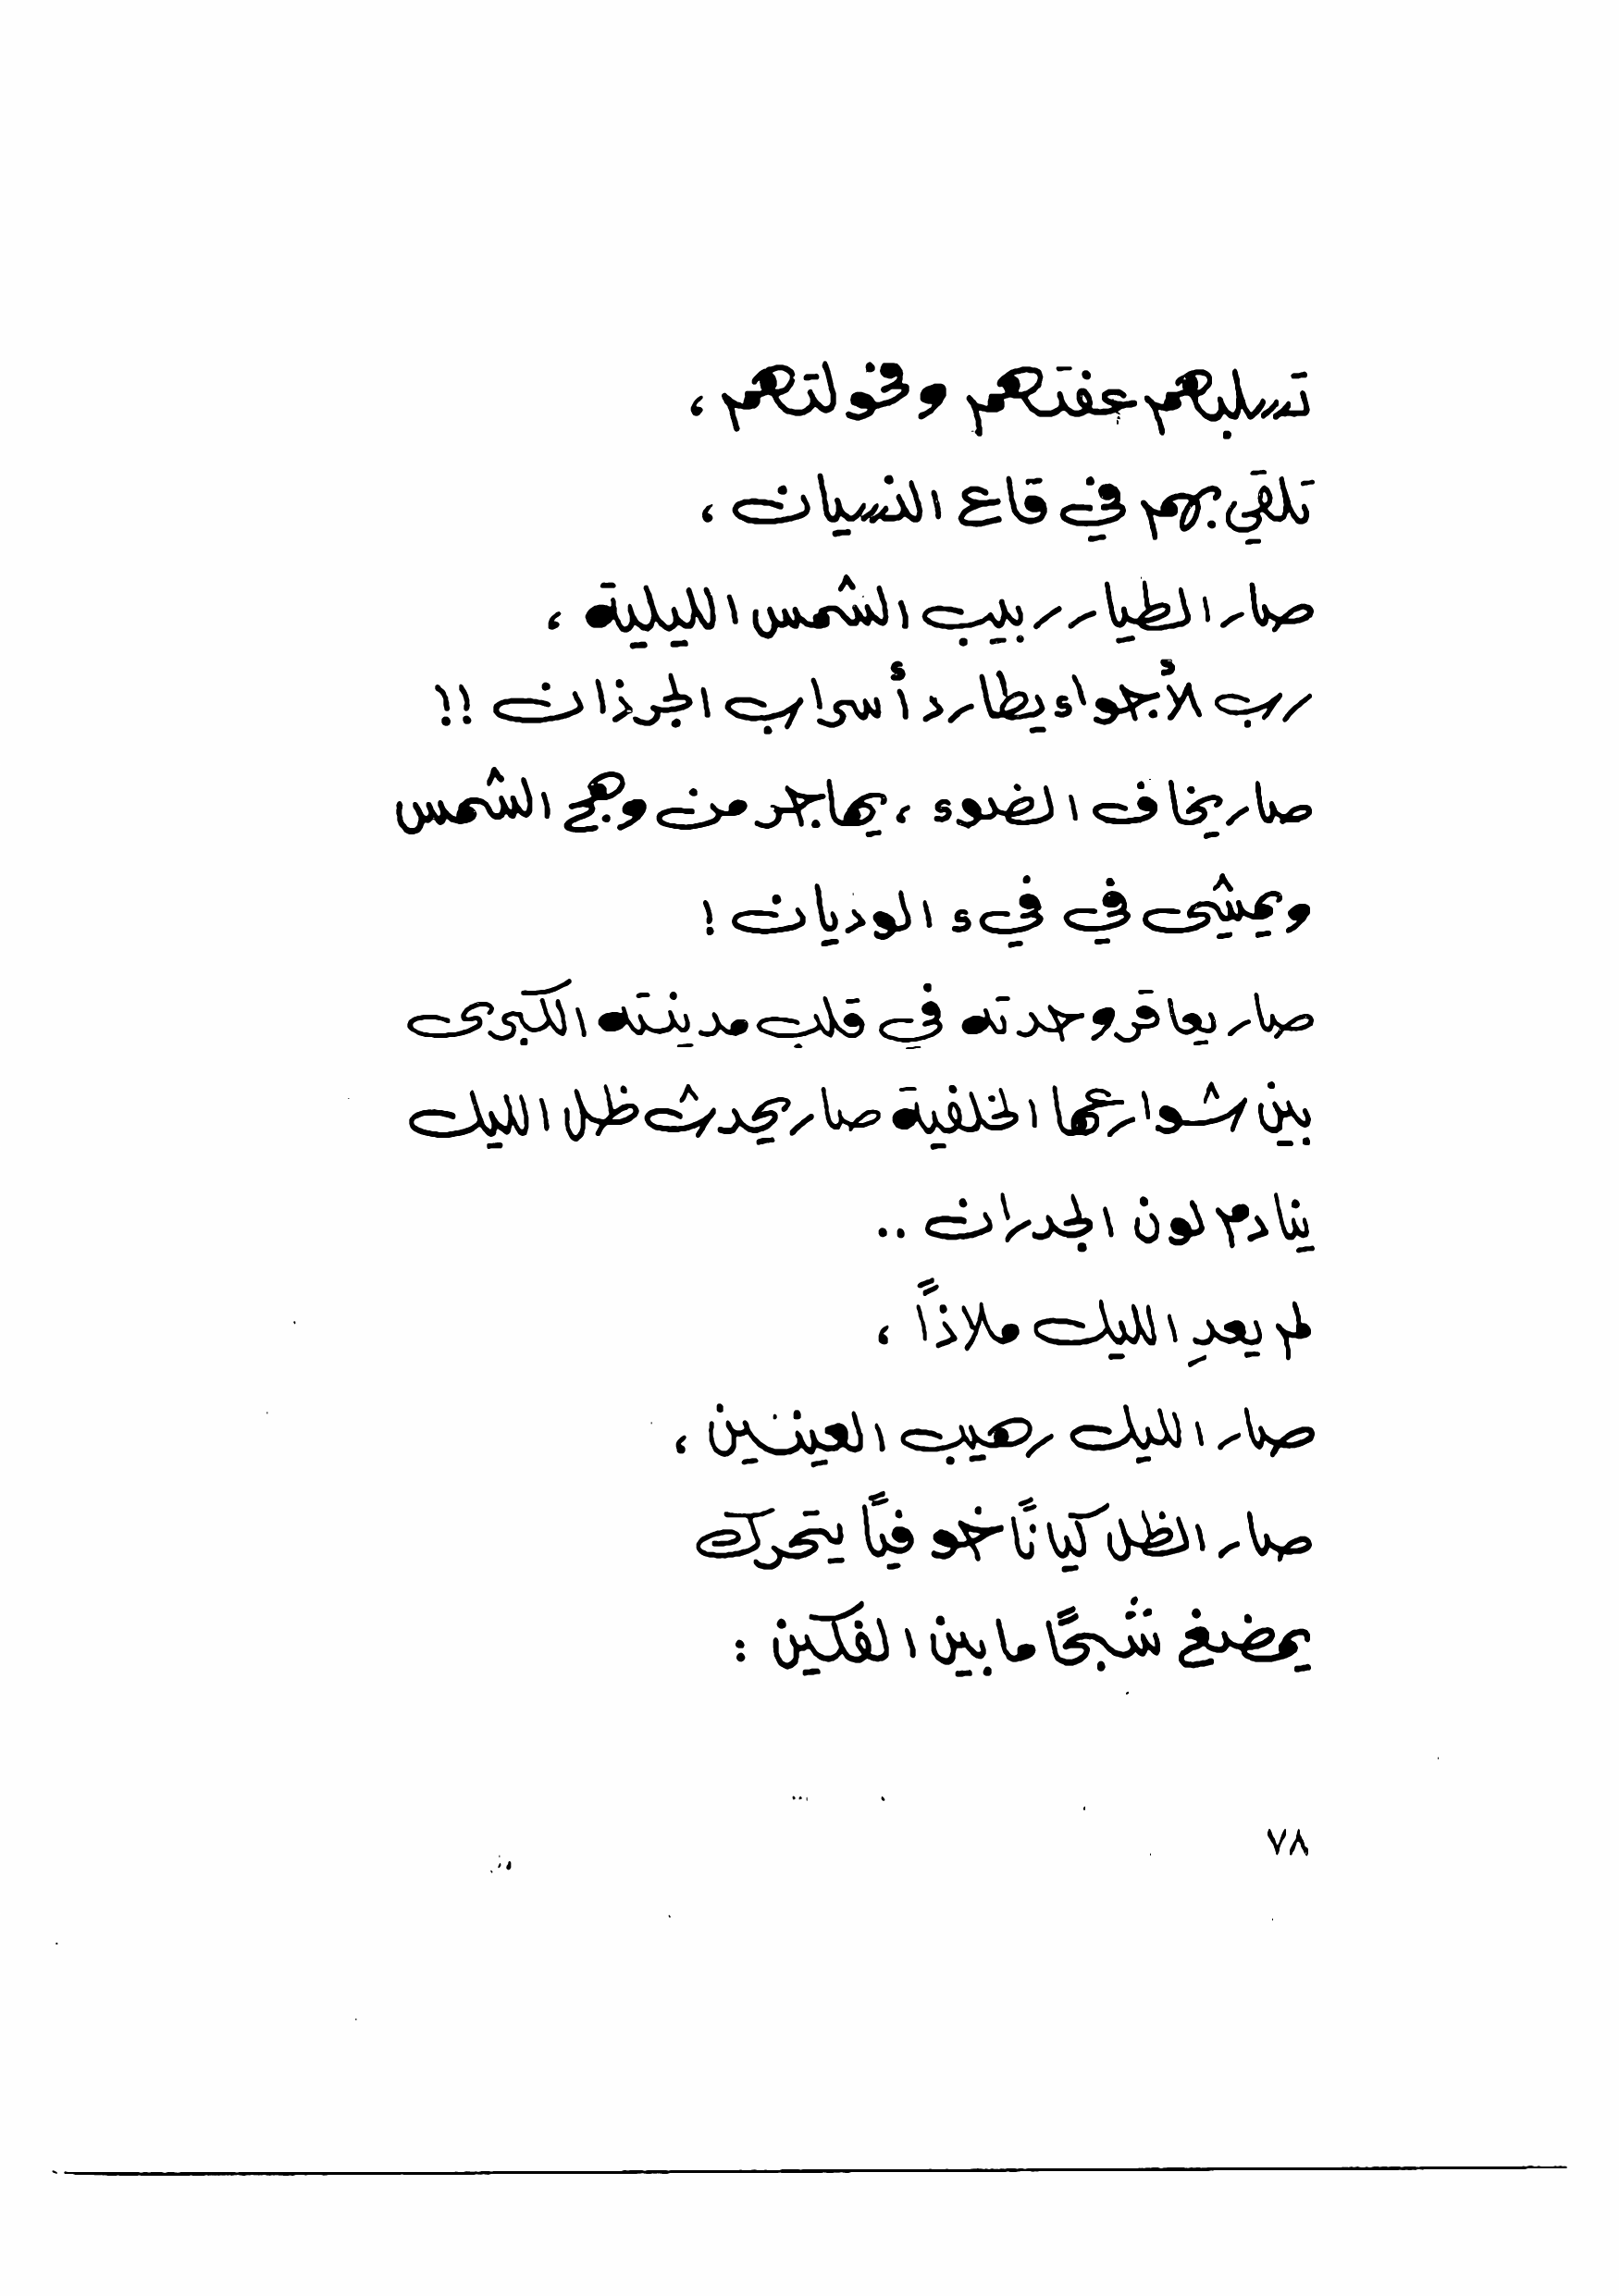 تسلبهم عفتهم وفحولتهم ،
تلقي بهم في قاع النسيان ،
صار الطيار ربيب الشمس الليلية ،
رب الأجواء يطارد أسراب الجرذان !!
صار يخاف الضوء ، يهاجر من وهج الشمس
ويمشى في فيء الوديان !
صار يعاقر وحدته في قلب مدينته الكبرى
بين شوارعها الخلفية صار يحدث ظل الليل
ينادم لون الجدران ..
لم يعدِ الليل ملاذاً ،
صار الليل رهيب العينين ،
صار الظل كياناً خوفياً يتحرك
يمضغ شبحاً ما بين الفكين :
٧٨